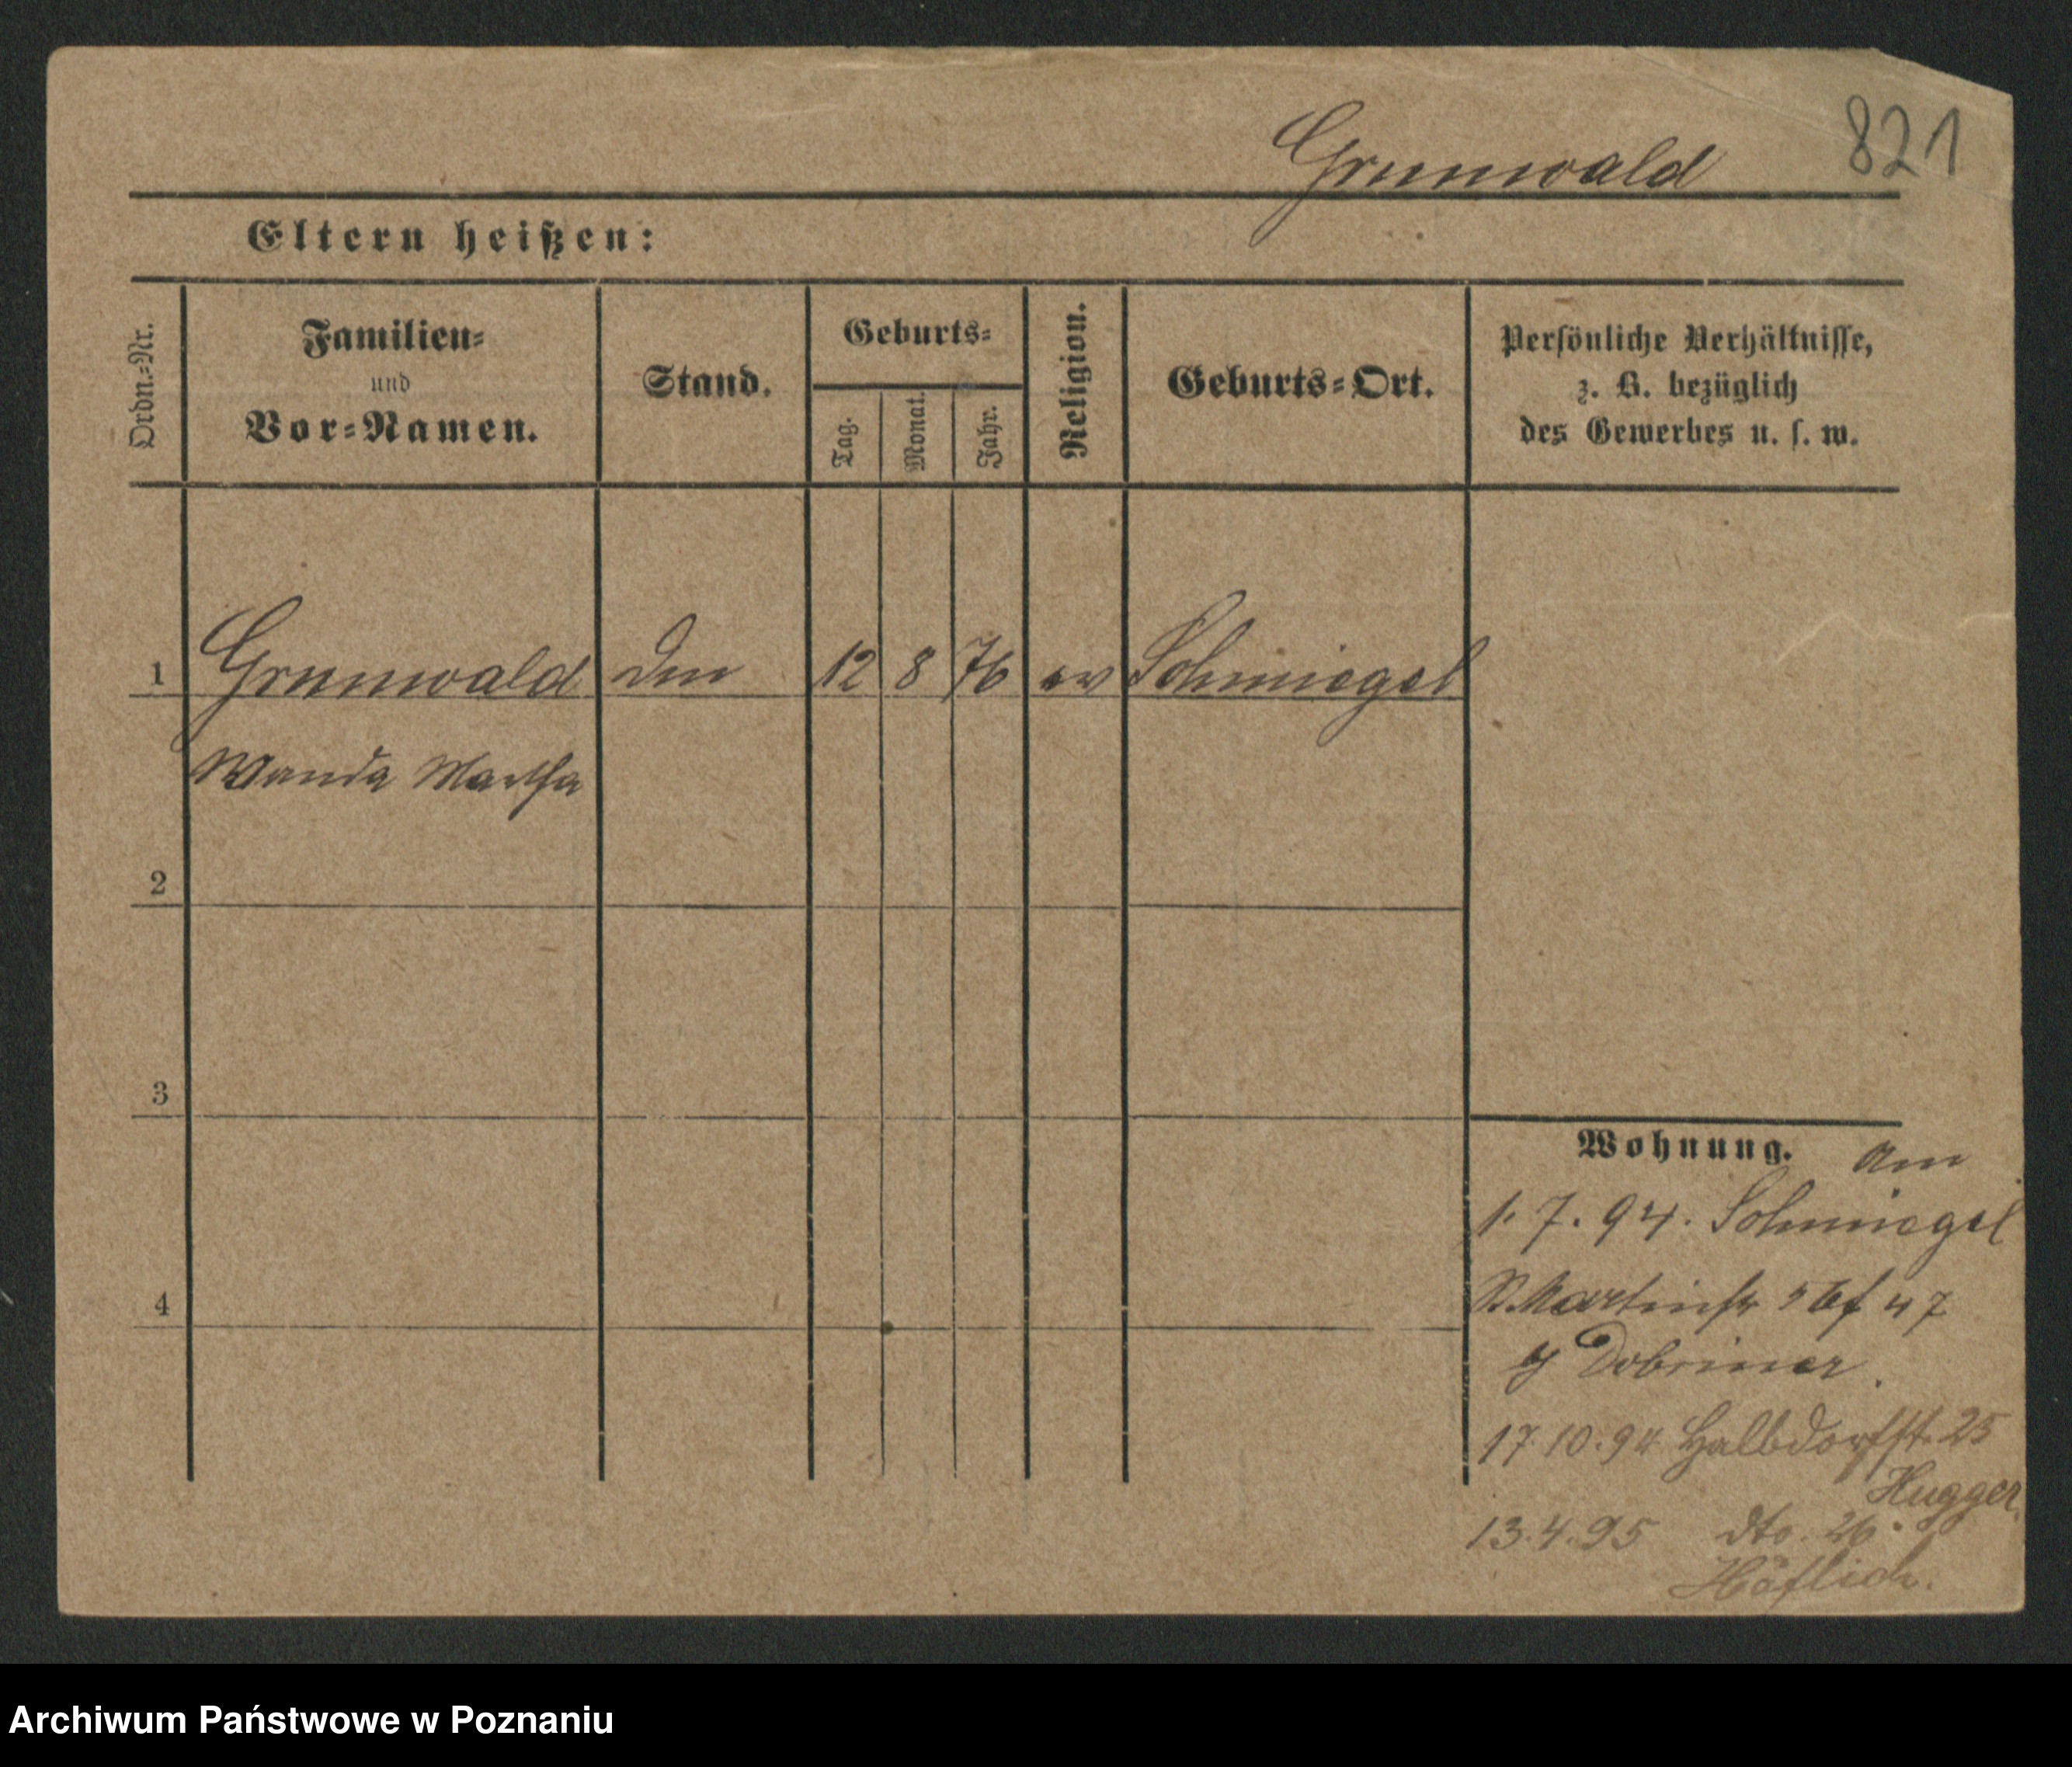 821
Grunwald
Eltern heißen:
Ordn.-Nr.
Familien-
und
Vor-Namen.
Stand.
Geburts-
Tag.
Monat.
Jahr.
Religion.
Geburts-Ort.
Persönliche Verhältnisse,
z. B. bezüglich
des Gewerbes u. s. w.
1 Grunwald 12 8 76 ev Schmiegel
Wanda Martha
2
3
4
Wohnung. Am
1.7.94. Schmiegel
St. Martinstr 47
Dobriner.
17.10.94 Halbdorfst. 25
Hugger
13.4.95 dto. 26.
Höflich.
Archiwum Państwowe w Poznaniu